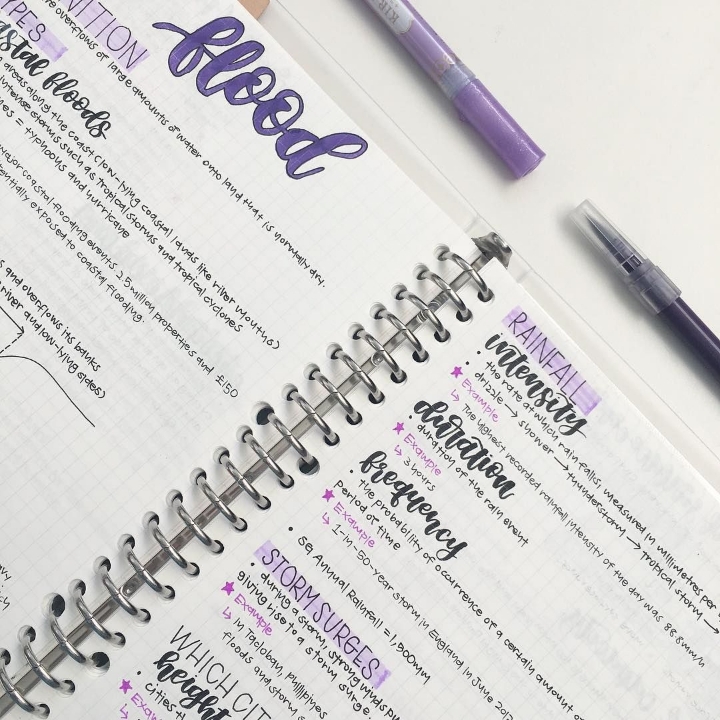 flood
NITION
overflows of large amounts of water onto land that is normally dry.
YPES
astal floods
areas along the coast (low-lying coastal lands like river mouths)
intense storms such as tropical storms and tropical cyclones
= typhoons and hurricane
major coastal flooding events, 2.5 million properties and £150
entially exposed to coastal flooding.
and overflows its banks
river and low-lying sides)
RAINFALL
intensity
• the rate at which rain falls, measured in millimetres per
drizzle → shower → thunderstorm → tropical storm →
★ Example
↳ The highest recorded rainfall intensity of the day was 88.8mm/h
duration
• duration of the rain event
★ Example
↳ 3 hours
frequency
• the probability of occurrence of a certain amount of
period of time
★ Example
↳ 1-in-50-year storm in England in June 20
• SG Annual Rainfall = 1,900mm
STORM SURGES
• during a storm, strong winds pu
giving rise to a storm surge.
★ Example
↳ in Tacloban, Philippines
floods and storm s
WHICH CIT
height
• cities th
★ Exam